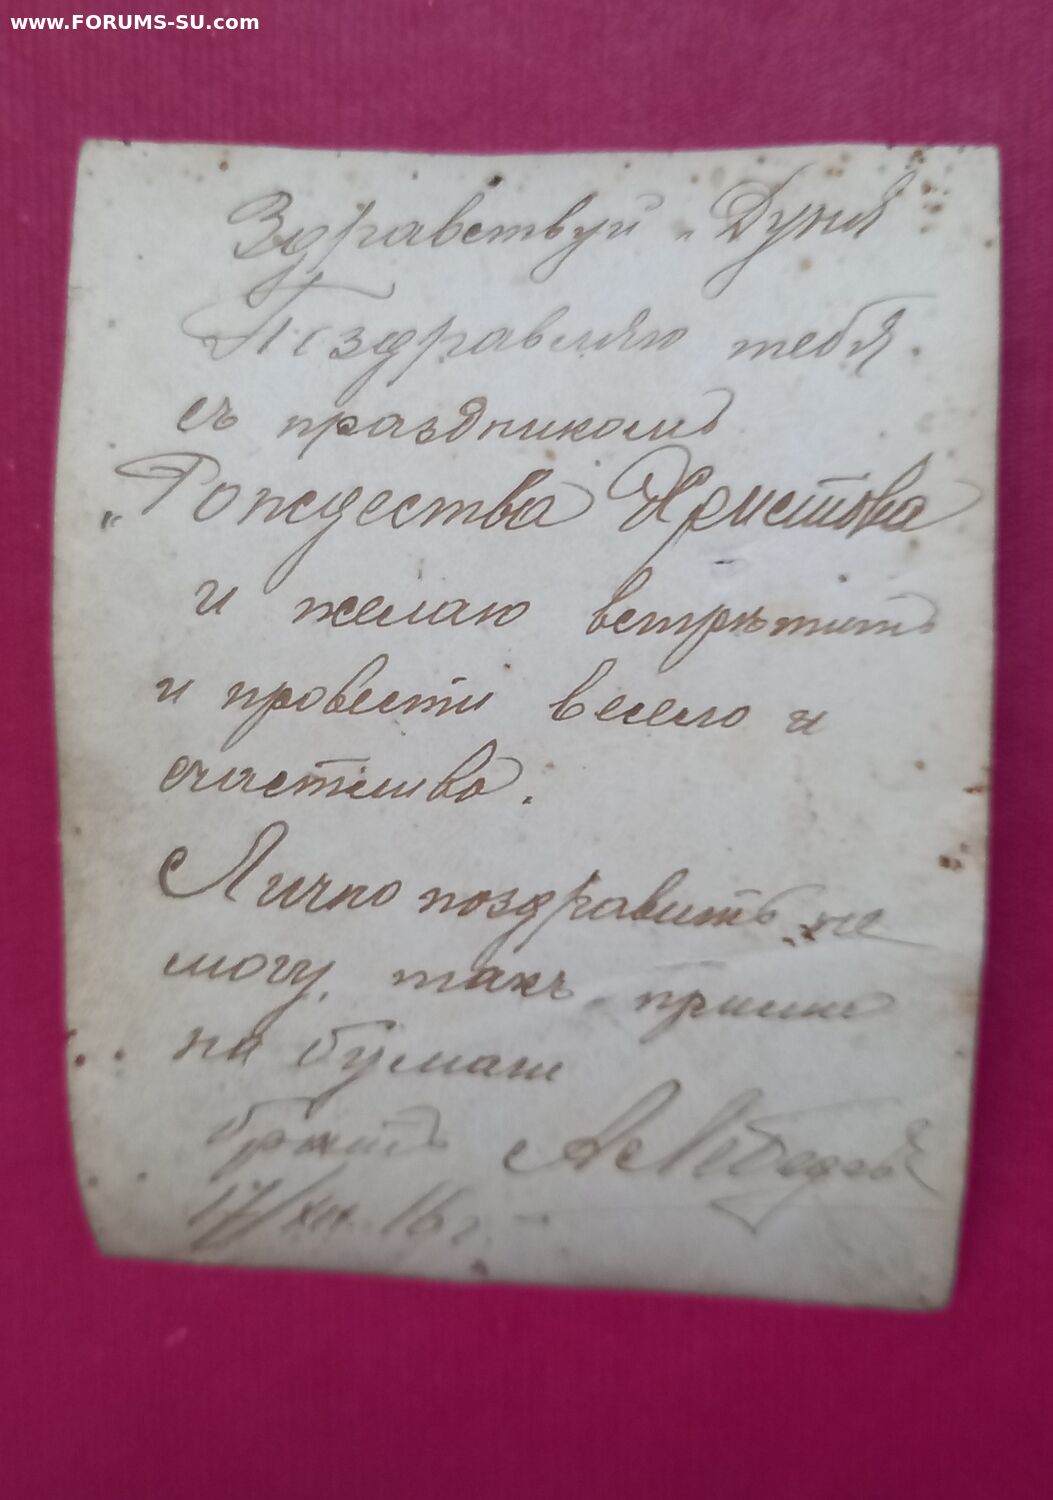 www.FORUMS-SU.com
Здравствуй „Дуня
Поздравляю тебя.
съ праздникомъ
„Рождества Христова
и желаю встрѣтить
и провести весело и
счастливо.
Лично поздравить не
могу, такъ прими
на бумаги
братъ А Лебедевъ
17/XII 16 г.